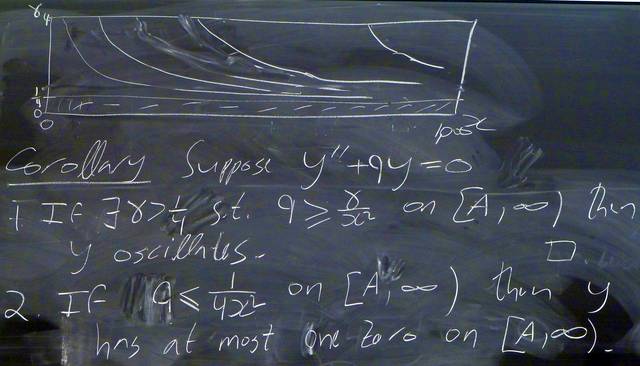 γ
4
1/4
0
0
1000 x
Corollary Suppose y'' + qy = 0
1. If ∃ γ > 1/4 s.t. q ≥ γ/x² on [A, ∞) then
y oscillates. □.
2. If q ≤ 1/4x² on [A, ∞) then y
has at most one zero on [A, ∞).